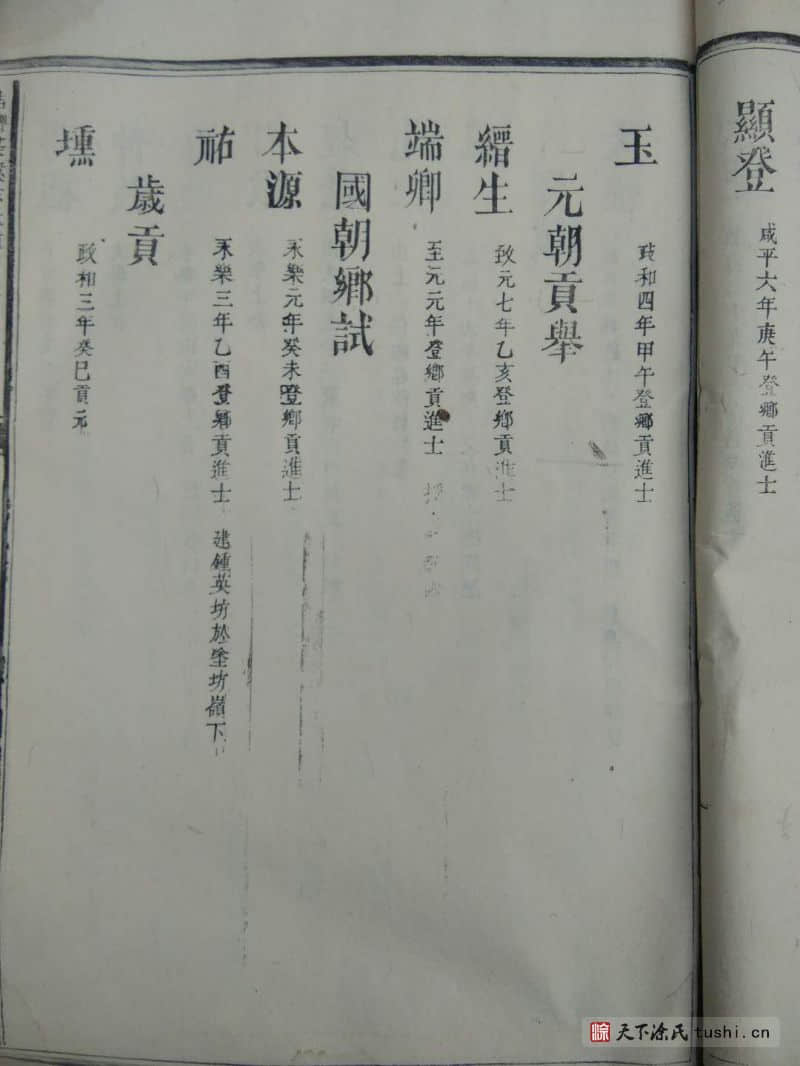 顯登 咸平六年庚午登鄉貢進士
玉 政和四年甲午登鄉貢進士
元朝貢舉
縉生 致元七年乙亥登鄉貢進士
端卿 至元元年登鄉貢進士
國朝鄉試
本源 永樂元年癸未登鄉貢進士
祐 永樂三年乙酉登鄉貢進士 建鍾英坊於塗坊嶺下
歲貢
壎 政和三年癸巳貢元
天下涂氏tushi.cn